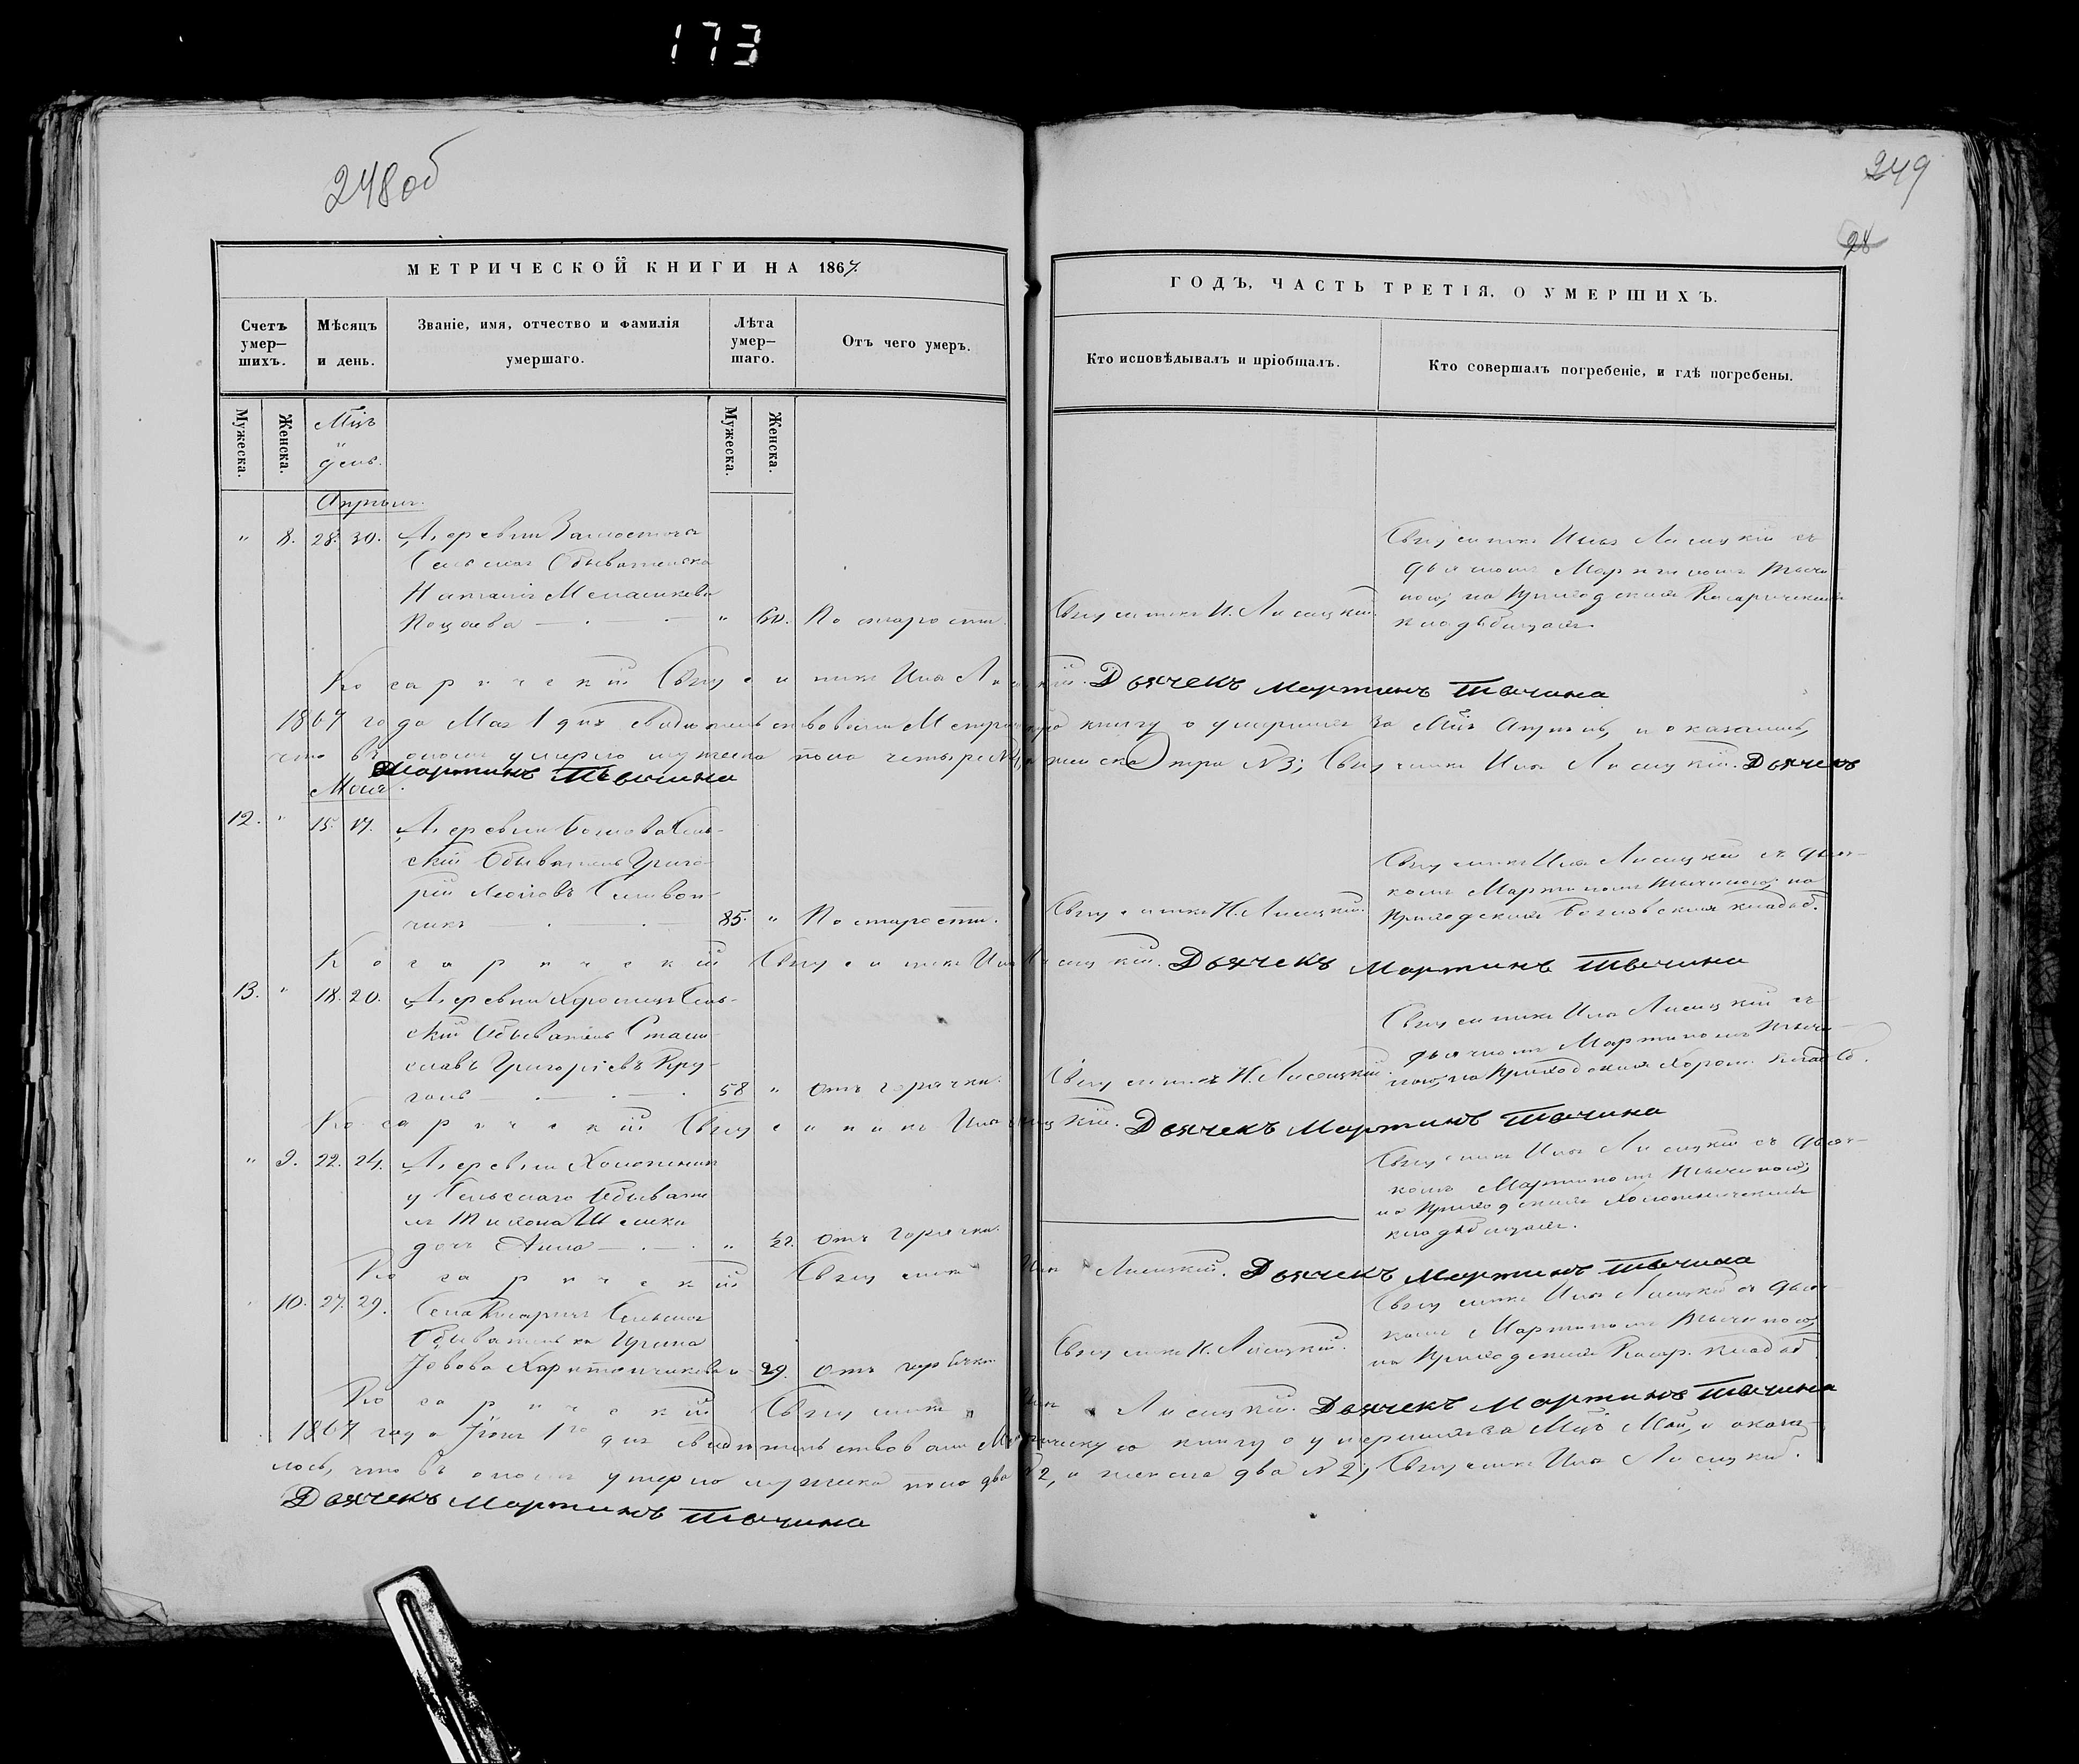 173
248об
249
28
МЕТРИЧЕСКОЙ КНИГИ НА 1867
ГОДЪ, ЧАСТЬ ТРЕТІЯ, О УМЕРШИХЪ.
Счетъ умер-шихъ.
Мѣсяцъ и день.
Званіе, имя, отчество и фамилія умершаго.
Лѣта умер-шаго.
Отъ чего умеръ.
Кто исповѣдывалъ и пріобщалъ.
Кто совершалъ погребеніе, и гдѣ погребены.
Мужеска.
Женска.
Мцъ
и
день.
Мужеска.
Женска.
Апрѣль.
" 8. 28. 30. Деревни
Сельская Обывателька
" 60. По старости.
Священникъ И. Лисицкій
Священникъ Илія Лисицкій съ
дьячкомъ Мартиномъ Тычи-
ною, на Приходскомъ
кладбищѣ.
Косаричскій Священникъ Илія Лисицкій. Дьячекъ Мартинъ Тычина
1867 года Мая 1 дня свидѣтельствовали Метрическую книгу о умершихъ за Мцъ Апрѣль, и оказалось,
что въ ономъ умерло мужеска пола четыре №4, и женска три №3; Священникъ Илія Лисицкій. Дьячекъ
Мартинъ Тычина
Май.
12. " 15. 17. Деревни Сель-
скій Обыватель Григо-
рій
чикъ 85. " По старости.
Священникъ И. Лисицкій.
Священникъ Илія Лисицкій съ дьяч-
комъ Мартиномъ Тычиною, на
Приходскомъ кладб.
Косаричскій Священникъ Илія Лисицкій. Дьячекъ Мартинъ Тычина
13. " 18. 20. Деревни Сель-
скій Обыватель Стани-
славъ Григоріевъ Кру-
58 " Отъ горячки.
Священникъ И. Лисицкій.
Священникъ Илія Лисицкій съ
дьячкомъ Мартиномъ Тычи-
ною, на Приходскомъ
Косаричскій Священникъ Илія Лисицкій. Дьячекъ Мартинъ Тычина
" 9. 22. 24. Деревни
у Сельскаго Обывате-
ля Тихона
дочь Анна " Отъ горячки.
Священникъ Илія Лисицкій съ дьяч-
комъ Мартиномъ Тычиною,
на Приходскомъ
кладбищѣ.
Косаричскій Священникъ Илія Лисицкій. Дьячекъ Мартинъ Тычина
" 10. 27. 29. Села Косаричъ Сельская
Обывателька Ирина
Іовова 29. Отъ горячки
Священникъ И. Лисицкій.
Священникъ Илія Лисицкій съ дьяч-
комъ Мартиномъ Тычиною,
на Приходскомъ Косар. кладб
Косаричскій Священникъ Илія Лисицкій. Дьячекъ Мартинъ Тычина
1867 года Іюня 1го дня свидѣтельствовали Метрическую книгу о умершихъ за Мцъ Май, и оказа-
лось, что въ ономъ умерло мужеска пола два №2, и женска два №2; Священникъ Илія Лисицкій.
Дьячекъ Мартинъ Тычина